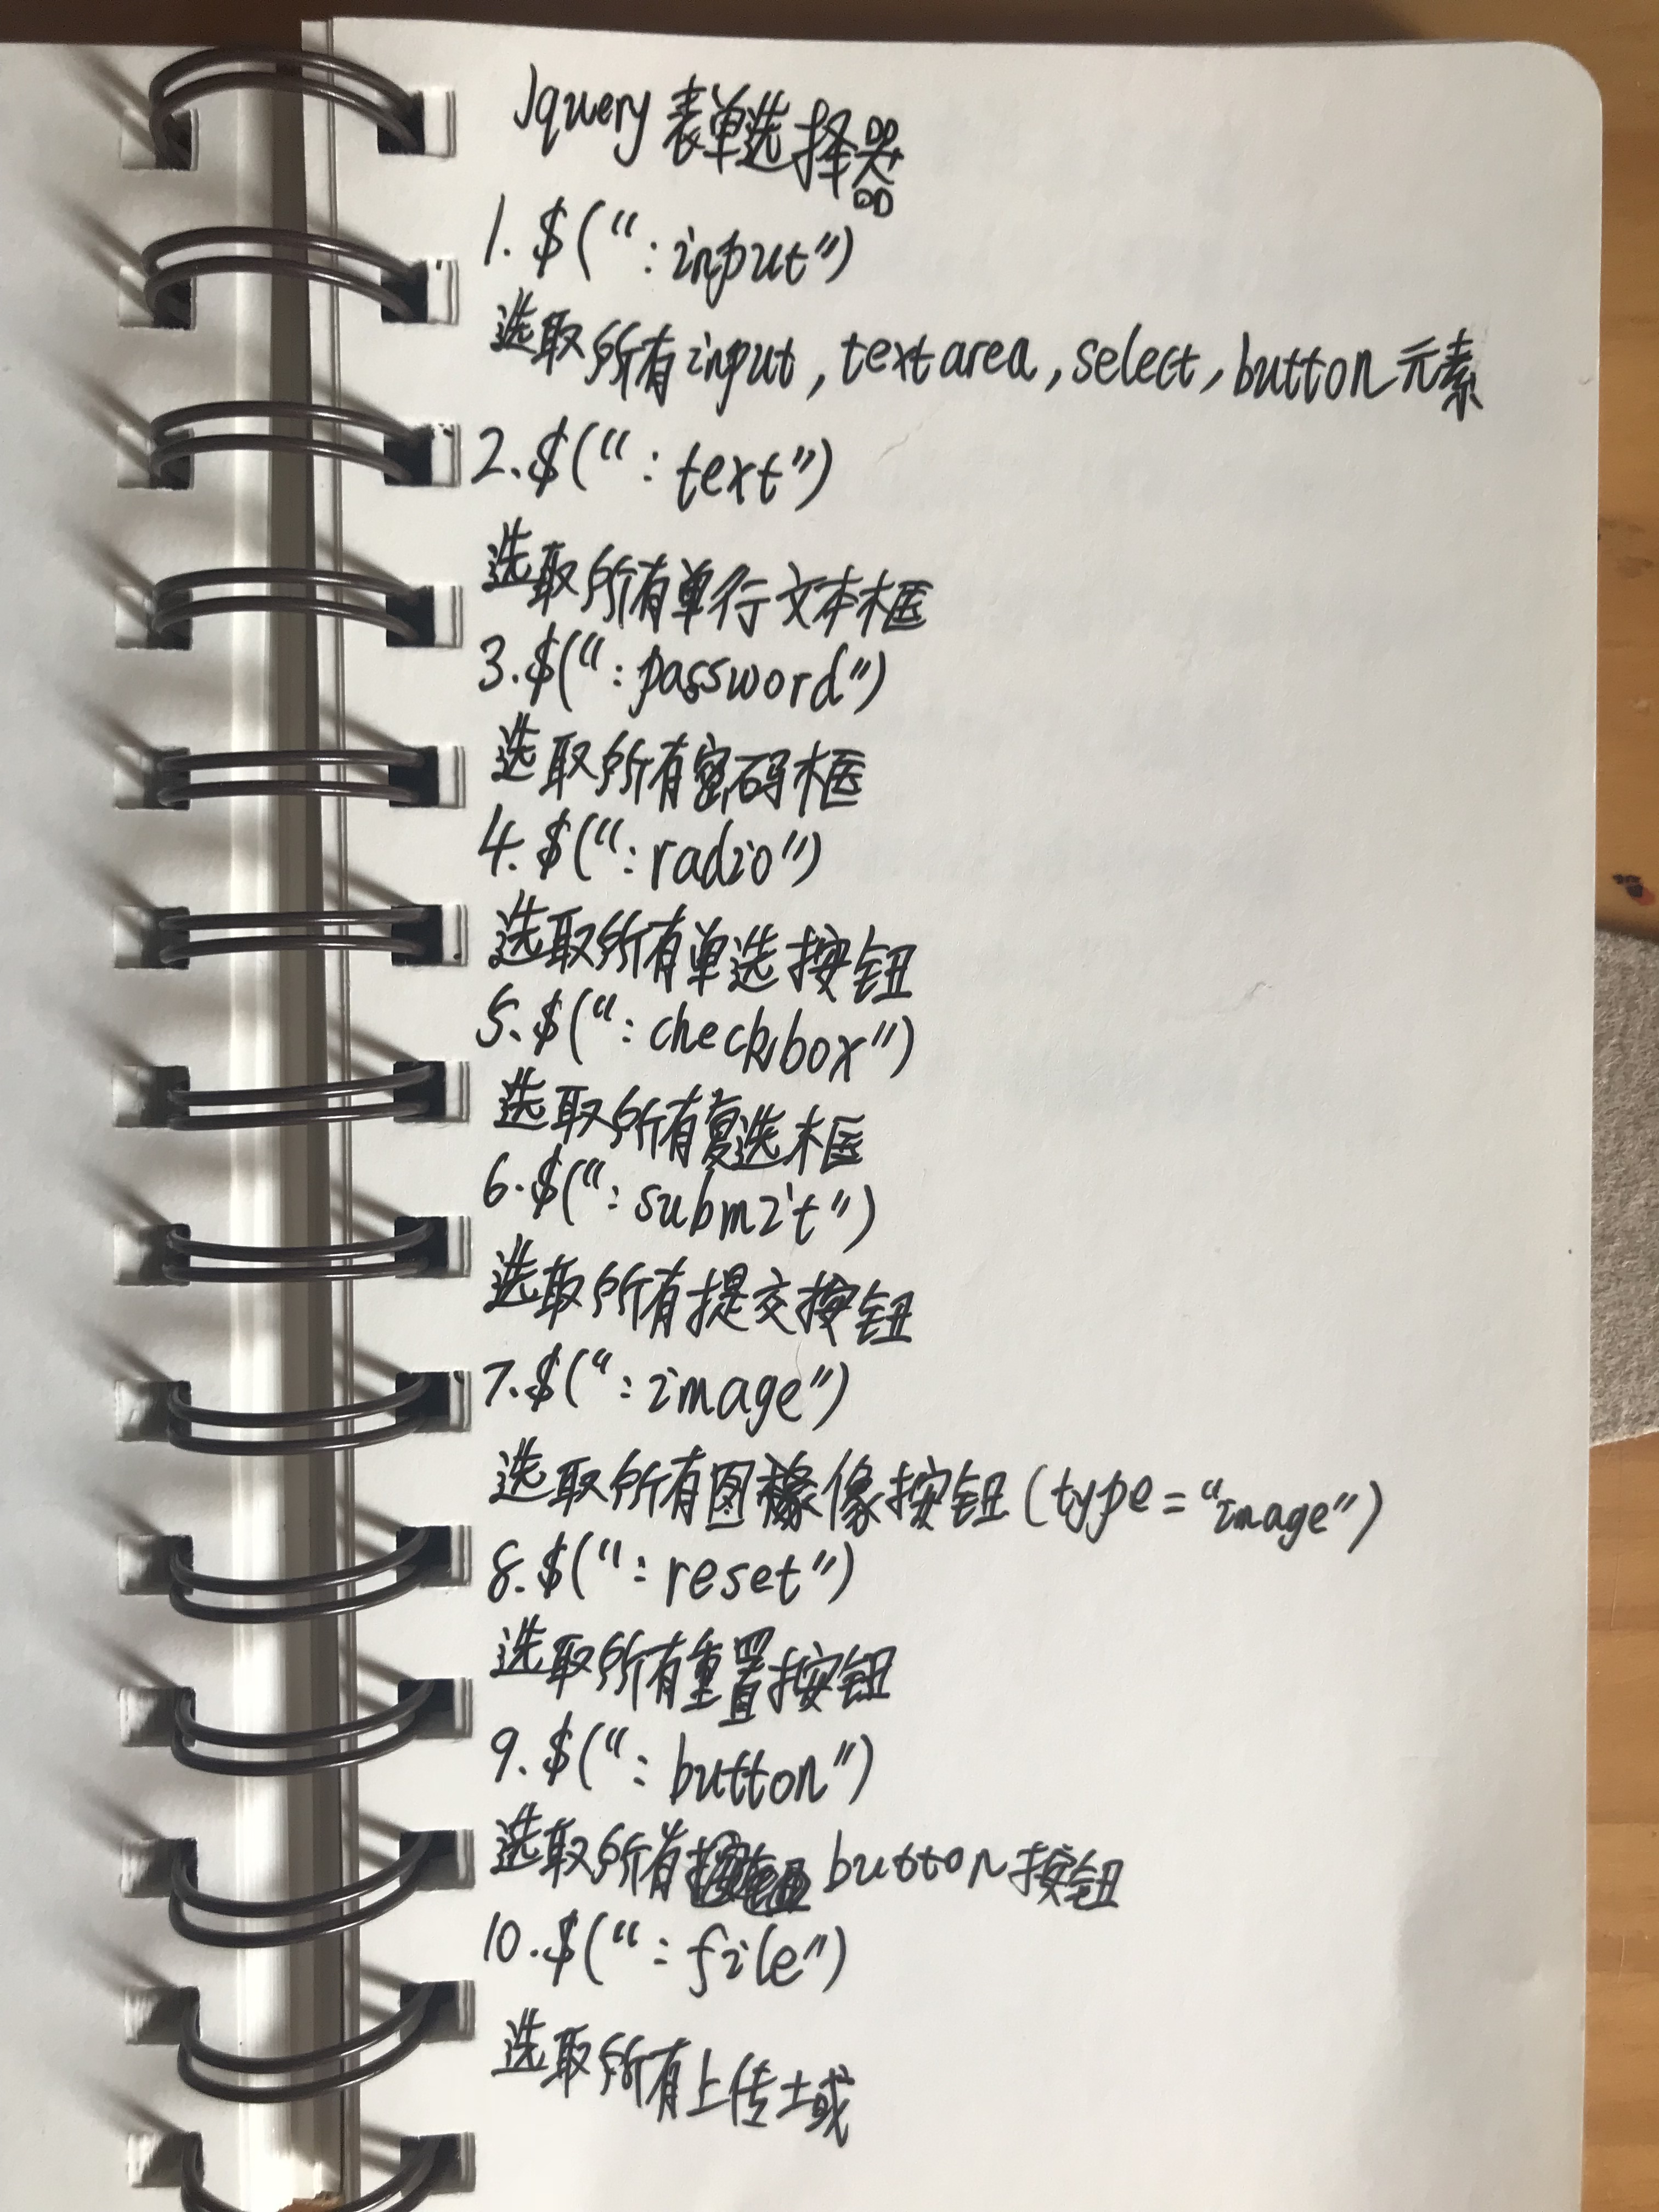 Jquery 表单选择器
1. $(“:input”)
选取所有input,textarea,select,button元素
2.$(“:text”)
选取所有单行文本框
3.$(“:password”)
选取所有密码框
4.$(“:radio”)
选取所有单选按钮
5.$(“:checkbox”)
选取所有复选框
6.$(“:submit”)
选取所有提交按钮
7.$(“:image”)
选取所有图像按钮(type=“image”)
8.$(“:reset”)
选取所有重置按钮
9.$(“:button”)
选取所有button按钮
10.$(“:file”)
选取所有上传域